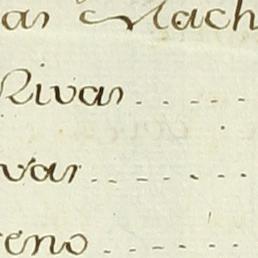 as Mach
Rivas . . . . .
var . . . . . .
reno . . . . . .